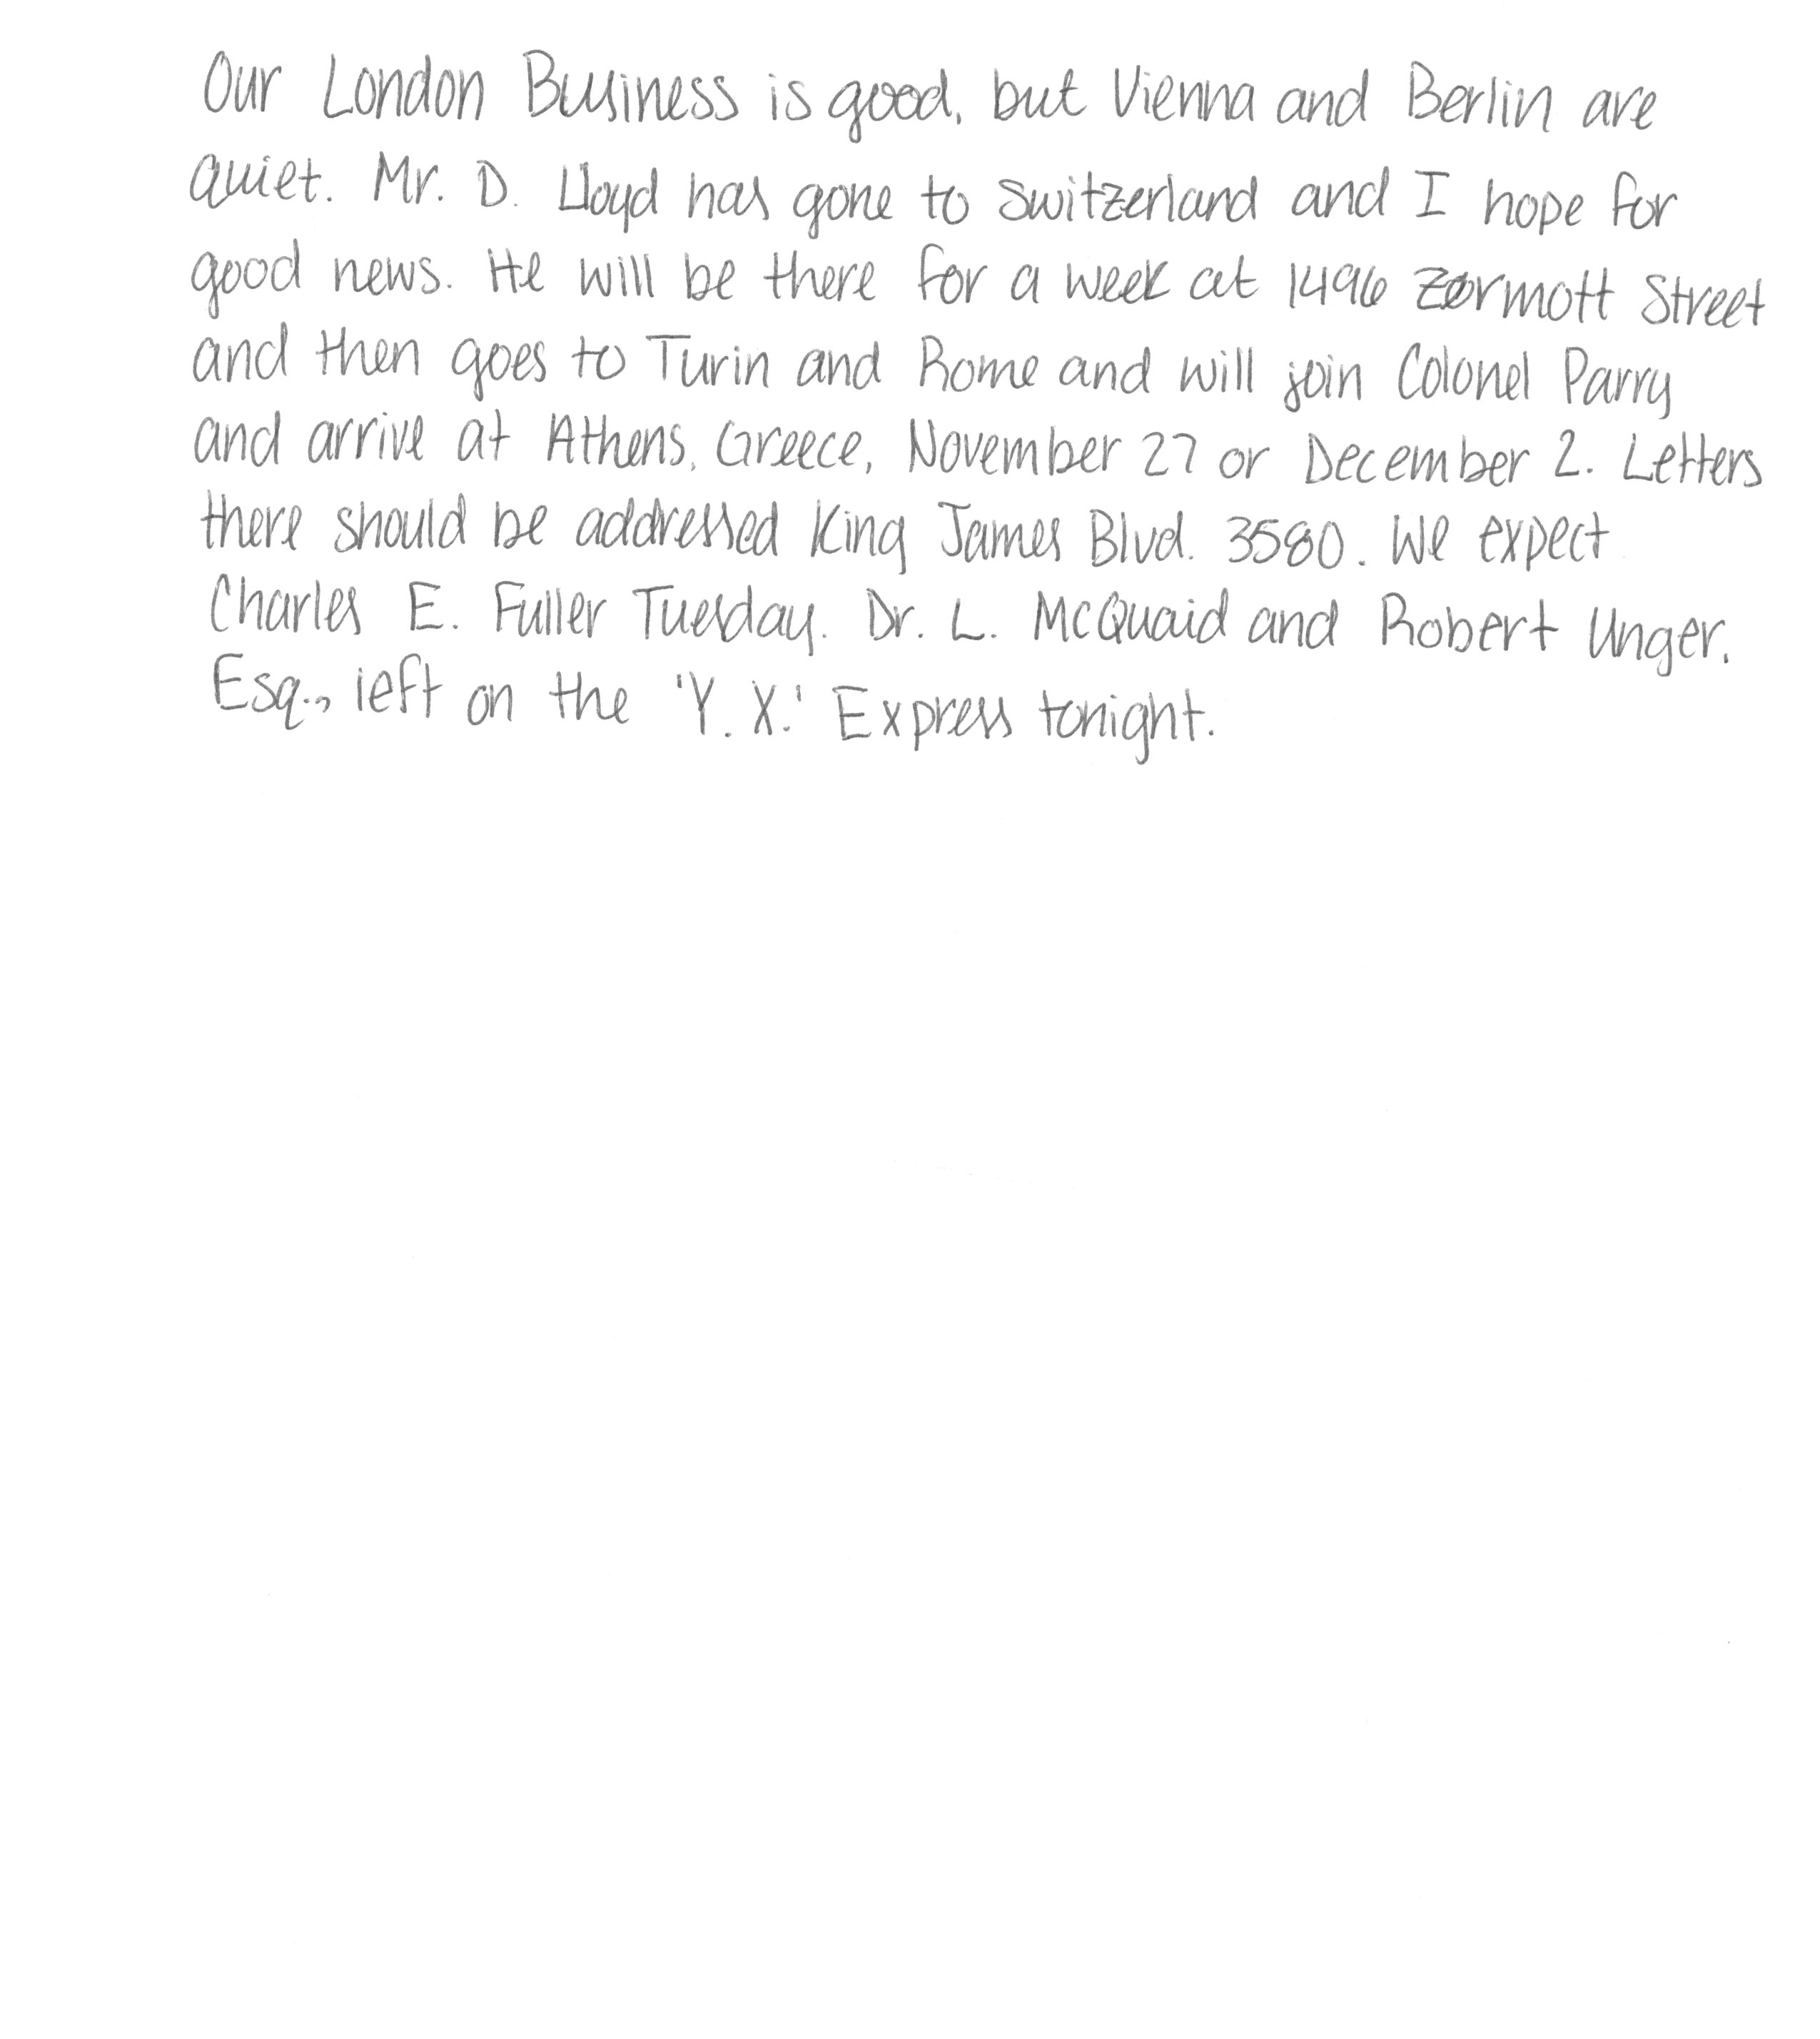 Our London Business is good, but Vienna and Berlin are
quiet. Mr. D. Lloyd has gone to Switzerland and I hope for
good news. He will be there for a week at 1496 Zermott Street
and then goes to Turin and Rome and will join Colonel Parry
and arrive at Athens, Greece, November 27 or December 2. Letters
there should be addressed King James Blvd. 3580. We expect
Charles E. Fuller Tuesday. Dr. L. McQuaid and Robert Unger,
Esq., left on the 'Y. X.' Express tonight.